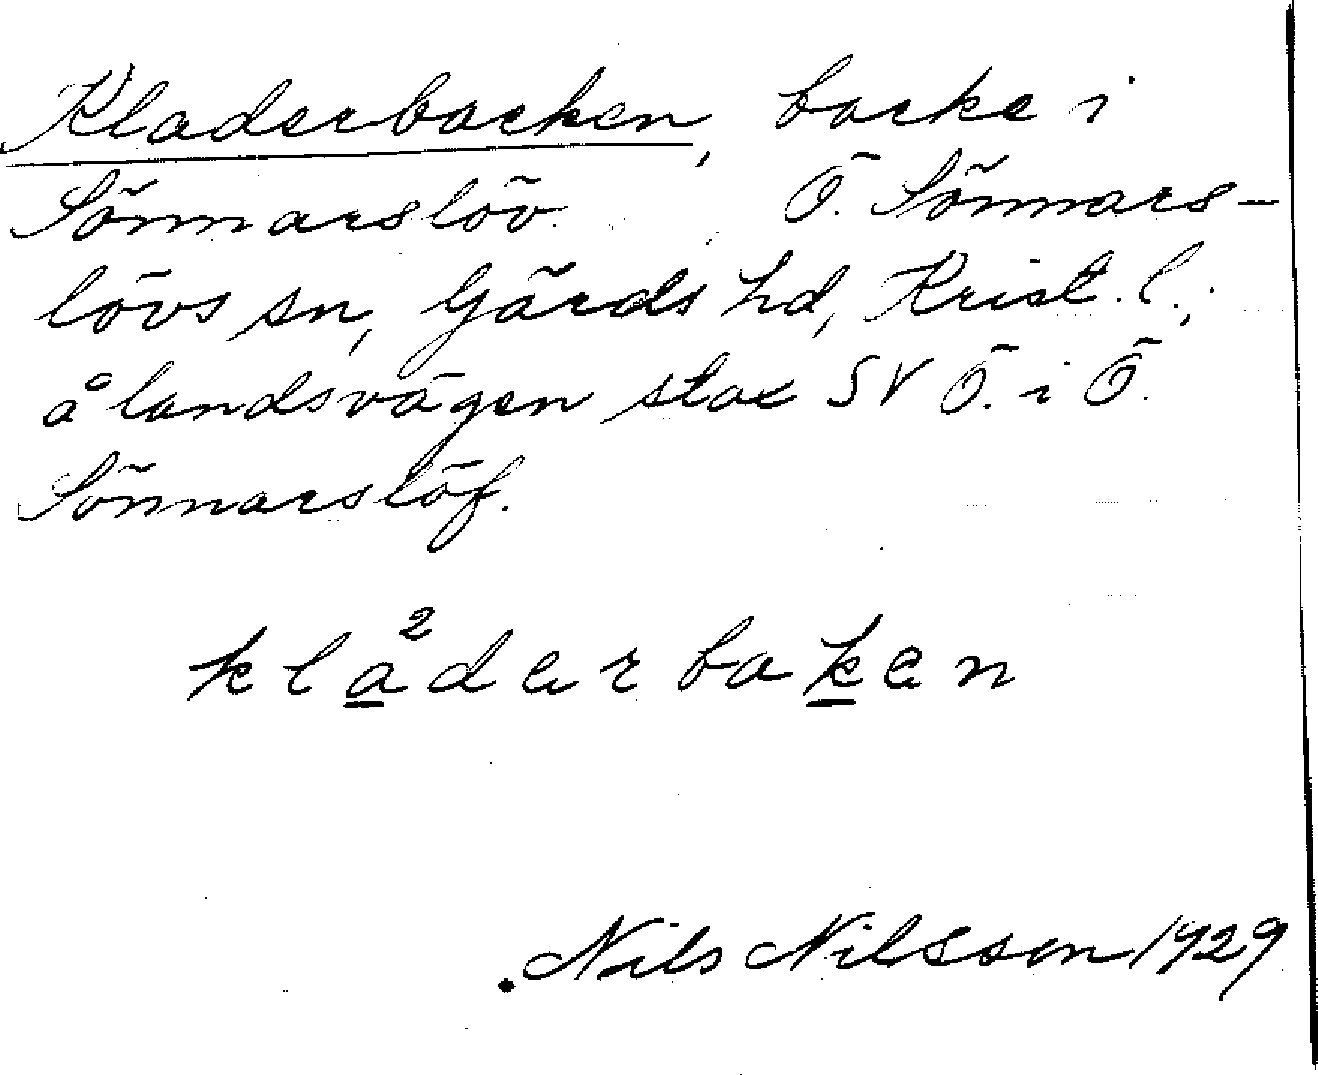 Kladerbacken, backe i
Sönnarslöv Ö. Sönnars-
lövs sn, Gärds hd, Krist. l.,
å landsvägen strax SV Ö. i Ö.
Sönnarslöf.
kla²derbaken
Nils Nilsson 1929